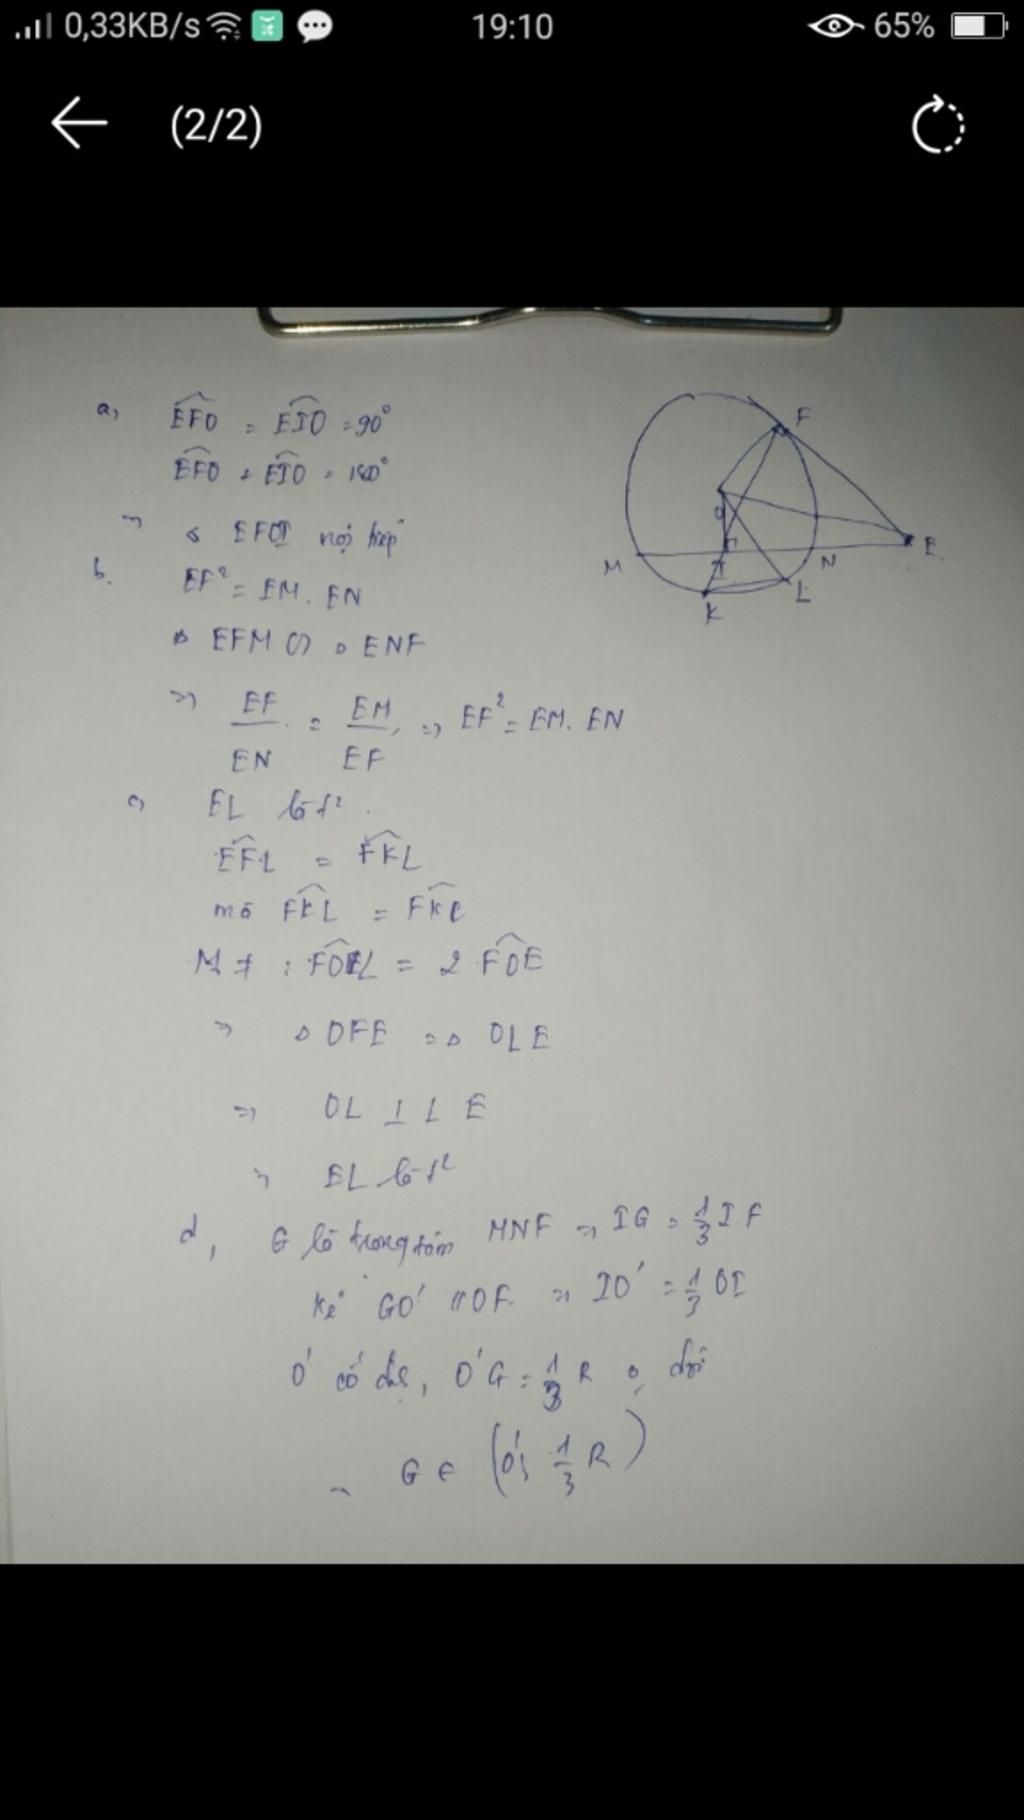 0,33KB/s 19:10 65%
(2/2)
a, EFO = EIO = 90°
EFO + EIO = 180°
EFOI nội tiếp
b. EF² = EM. EN
EFM ENF
EF = EM => EF² = EM. EN
EN EF
c) EL
EFL = FKL
mà FKL
FOL = 2 FOE
=> Δ OFE = Δ OLE
=> OL ⊥ LE
EL
d, G là trọng tâm MNF => IG = 1/3 IF
Kẻ GO' // OF. => IO' = 1/3 OI
O' cố định, O'G = 1/3 R
G ∈ (O'; 1/3 R)
F
O
E
M
I
N
K
L